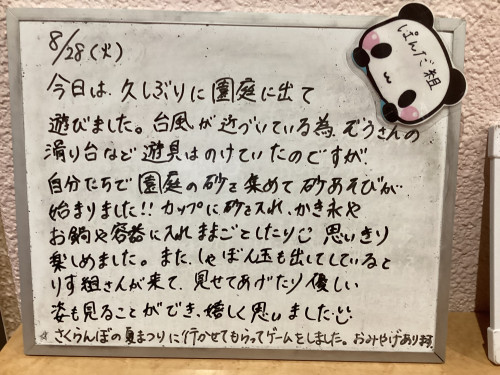 8/28(火)
ぱんだ組
今日は、久しぶりに園庭に出て
遊びました。台風が近づいている為、ぞうさんの
滑り台など遊具はのけていたのですが、
自分たちで園庭の砂を集めて砂あそびが
始まりました!! カップに砂を入れ、かき氷や
お鍋や容器に入れままごとしたり 思いきり
楽しめました。また、しゃぼん玉も出してしているとりす組さんが来て、見せてあげたり優しい
姿も見ることができ、嬉しく思いました
☆さくらんぼの夏まつりに行かせてもらってゲームをしました。おみやげあります